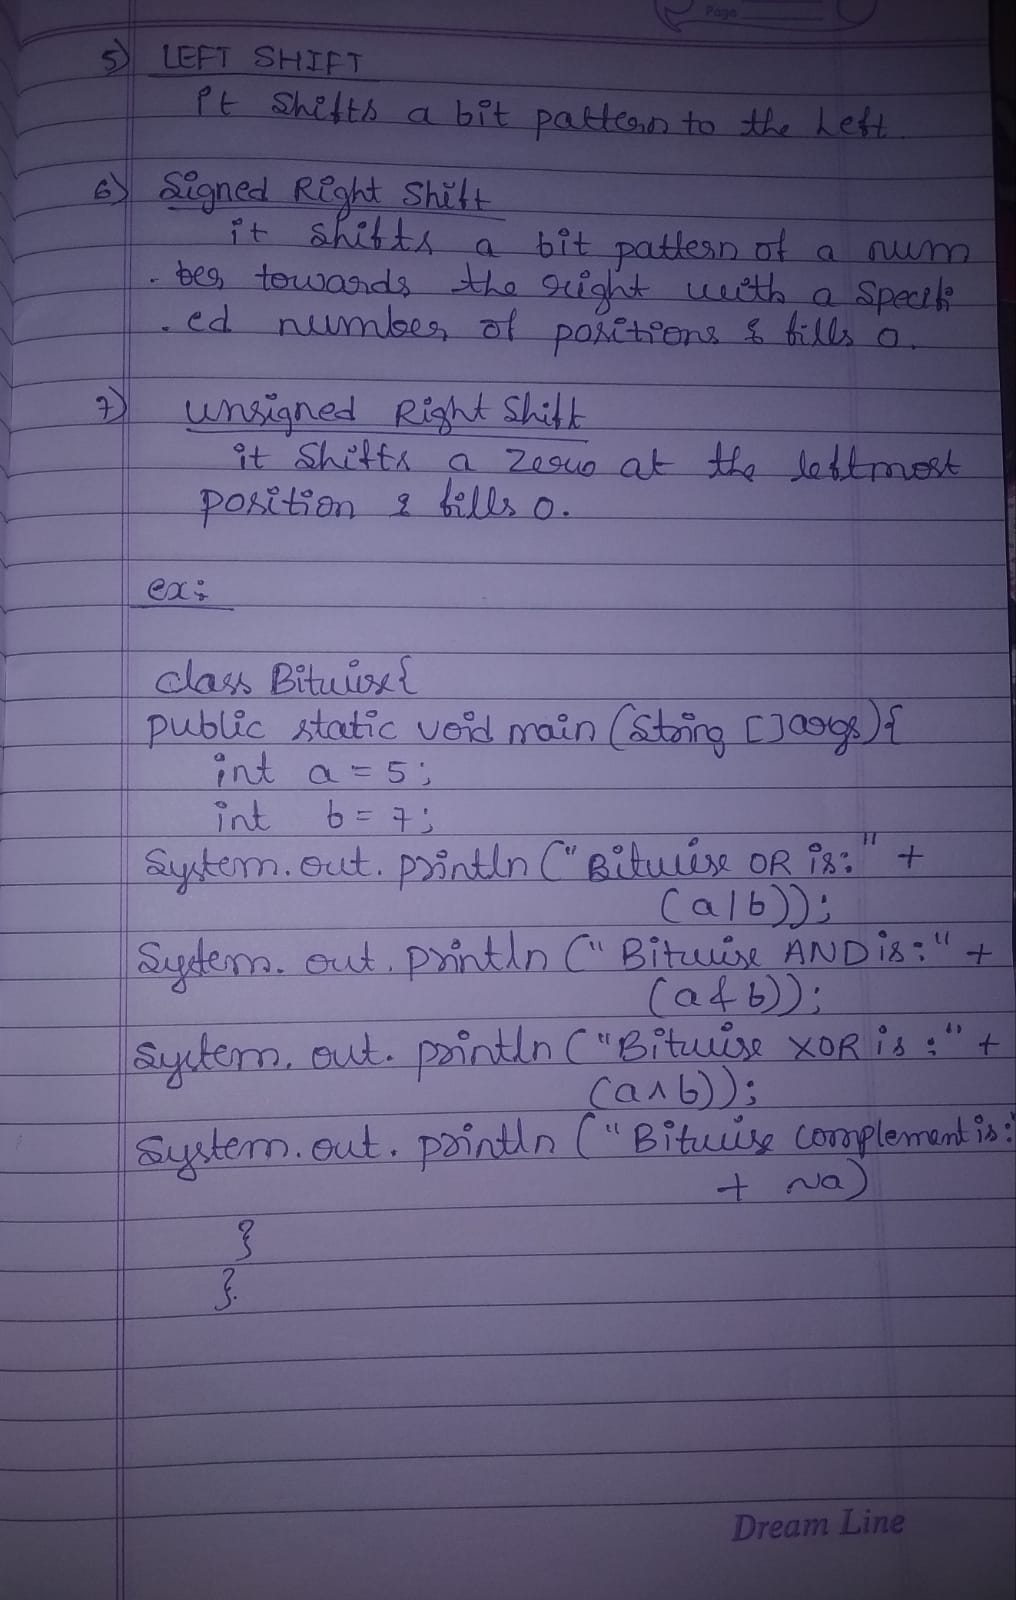 Page
5) LEFT SHIFT
It shifts a bit pattern to the Left.
6) Signed Right Shift
it shifts a bit pattern of a num
. ber towards the right with a specifi
. ed number of positions & fills 0.
7) unsigned Right Shift
it Shifts a zero at the leftmost
position & fills 0.
ex:
class Bitwise{
public static void main (String []args){
int a = 5;
int b = 7;
System.out.println ("Bitwise OR is:" +
(a|b));
System.out.println ("Bitwise AND is:" +
(a&b));
System.out.println ("Bitwise XOR is :" +
(a^b));
System.out.println ("Bitwise complement is:
+ ~a)
}
}.
Dream Line